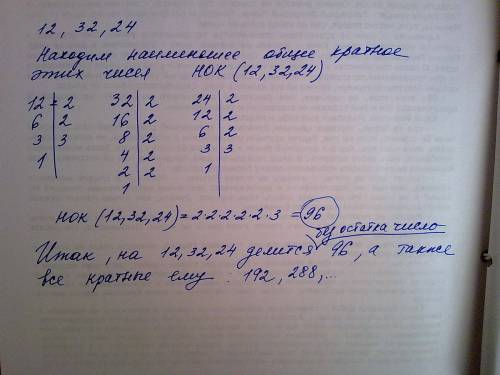 12, 32, 24
Находим наименьшее общее кратное
этих чисел НОК (12,32,24)
12 2 32 2 24 2
6 2 16 2 12 2
3 3 8 2 6 2
1 4 2 3 3
2 2 1
1
НОК (12,32,24) = 2·2·2·2·2·3 = 96
без остатка число
Итак, на 12,32,24 делится 96, а также
все кратные ему: 192, 288,...